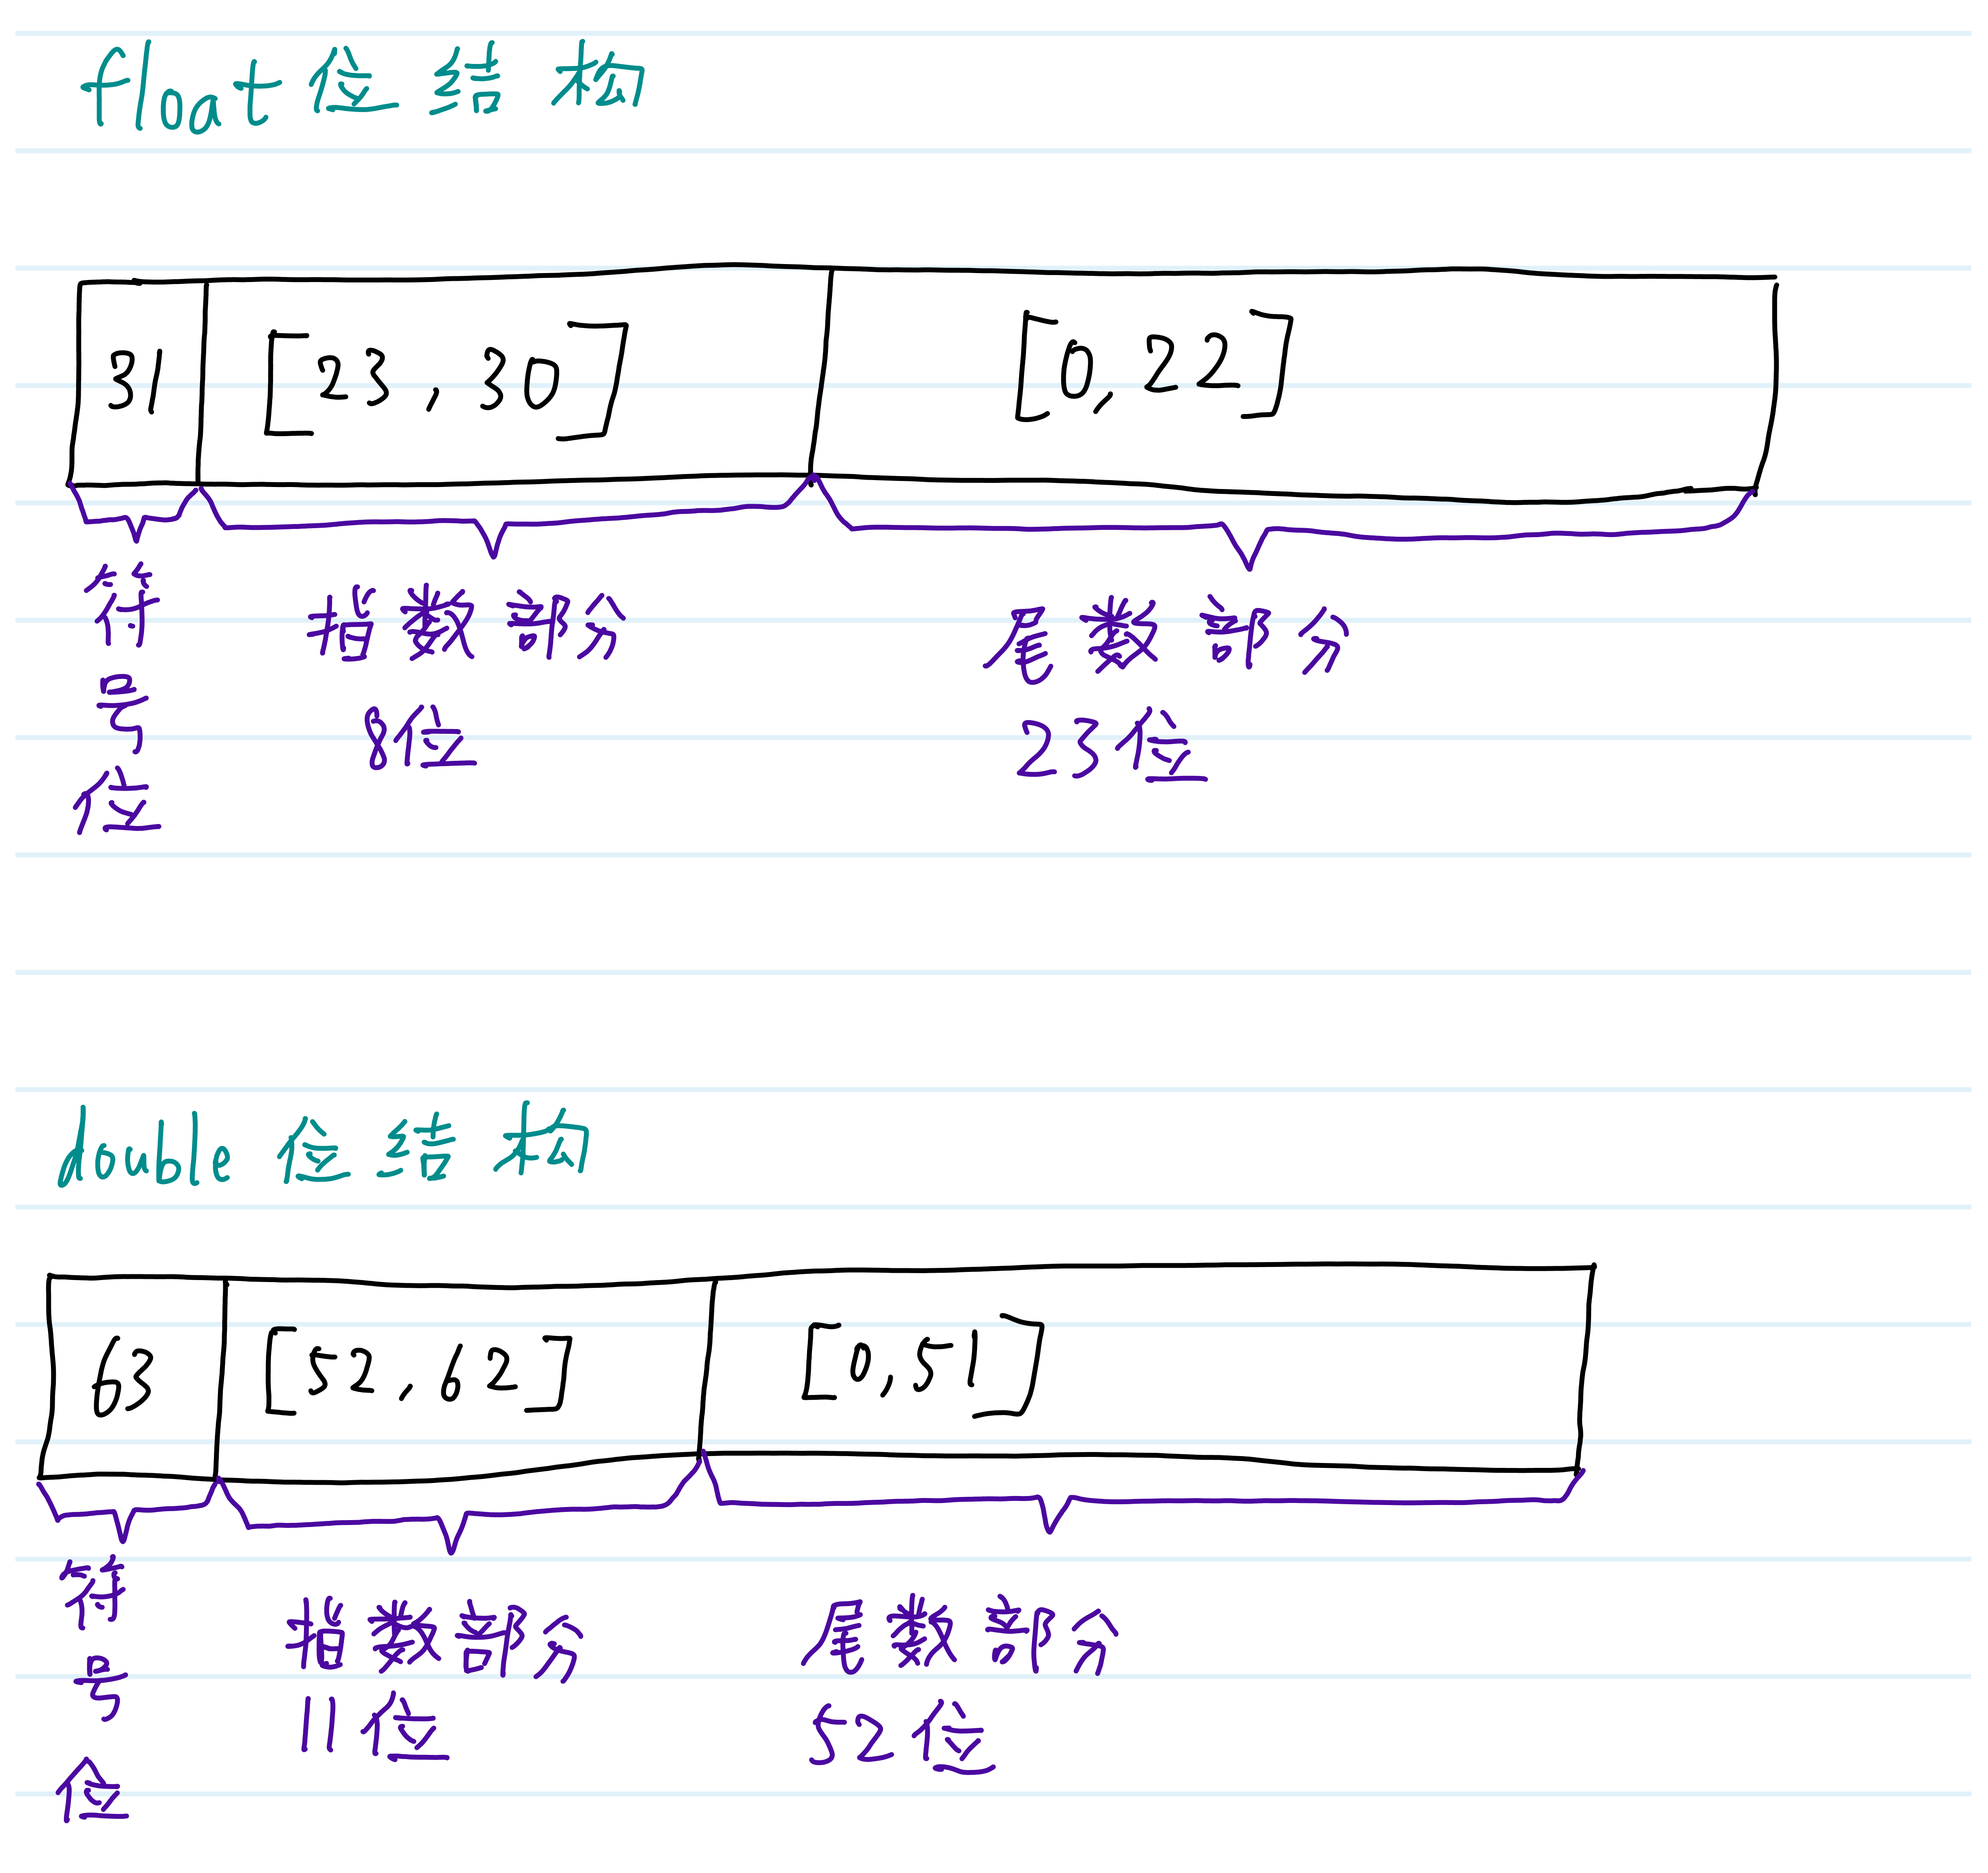 float 位结构
31 [23, 30] [0, 22]
符号位 指数部分 尾数部分
8位 23位
double 位结构
63 [52, 62] [0, 51]
符号位 指数部分 尾数部分
11位 52位